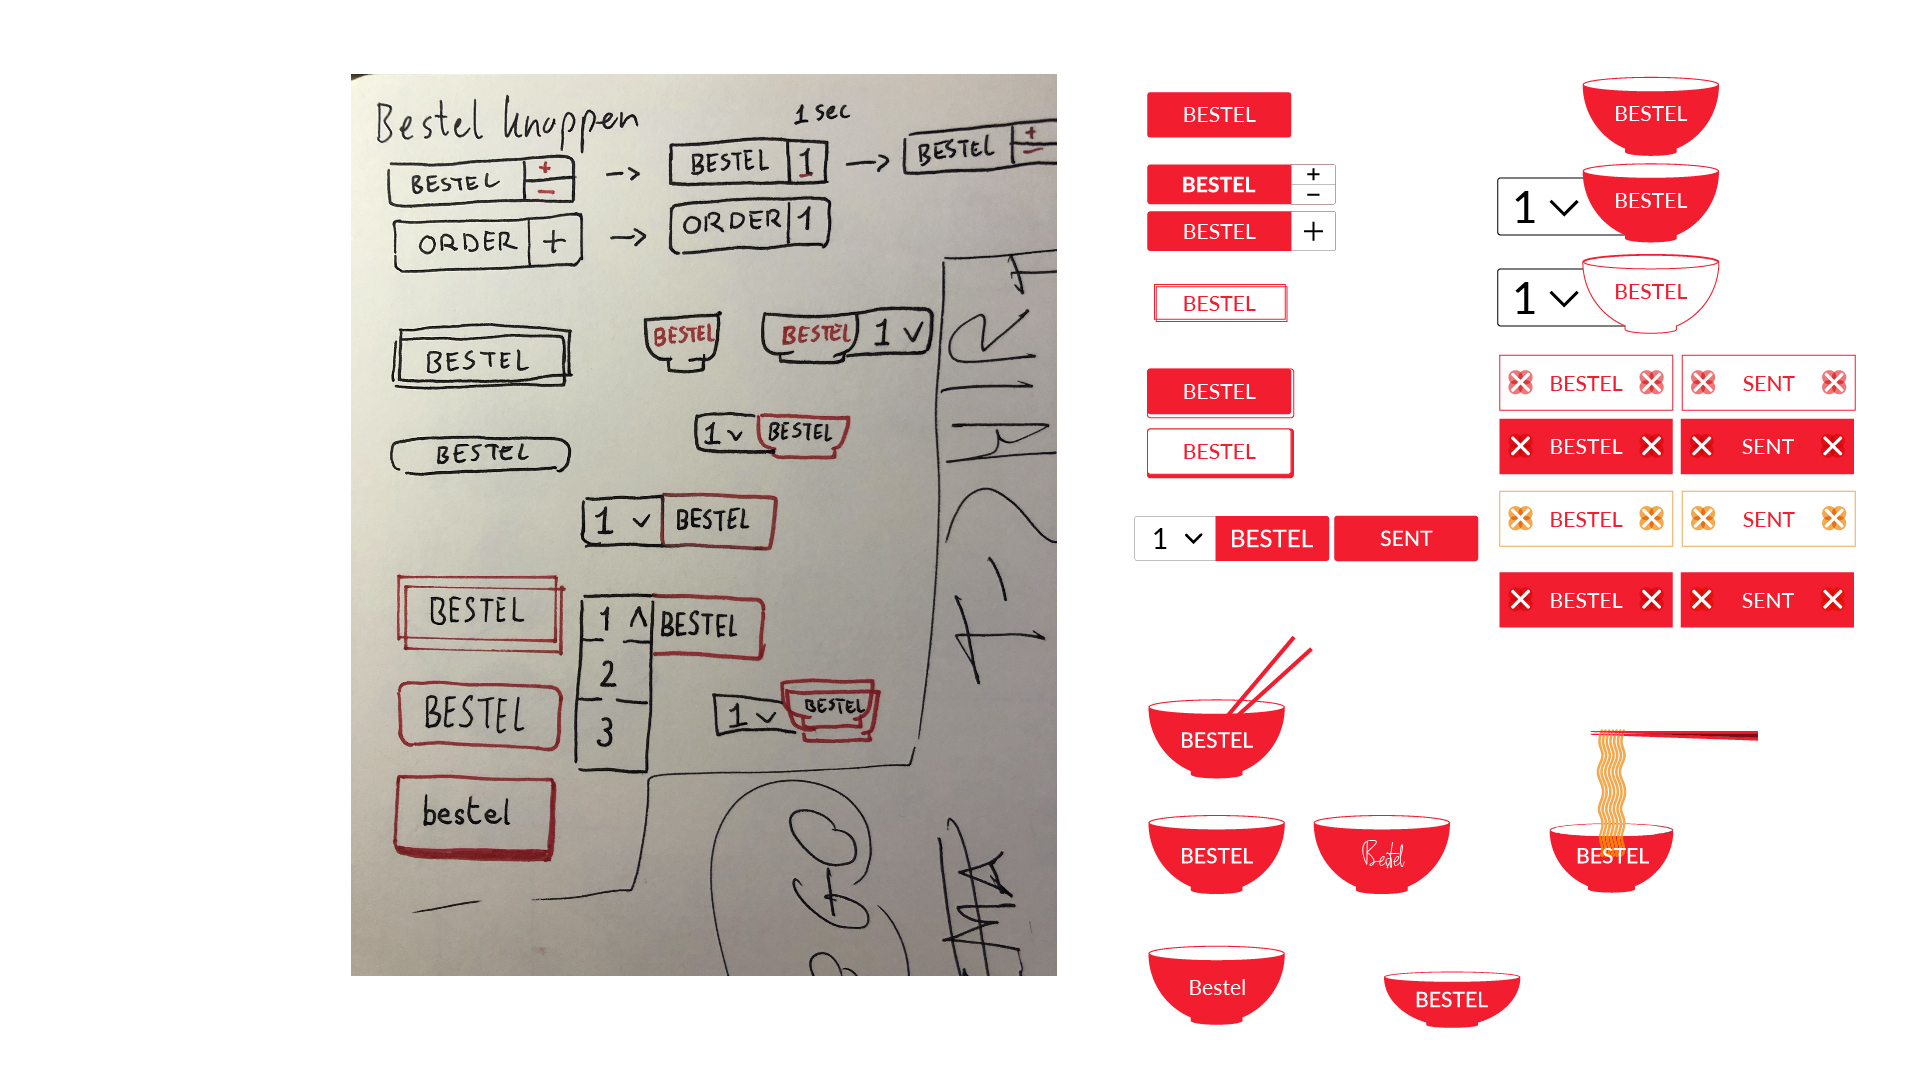 Bestel knoppen
1 sec
BESTEL + -
->
BESTEL 1
->
BESTEL + -
ORDER +
->
ORDER 1
BESTEL
BESTEL
BESTEL 1
BESTEL
1 BESTEL
1 BESTEL
BESTEL
1 BESTEL
2
3
BESTEL
1 BESTEL
bestel
BESTEL
BESTEL + -
BESTEL +
BESTEL
BESTEL
BESTEL
1 BESTEL SENT
BESTEL
1 BESTEL
1 BESTEL
BESTEL SENT
BESTEL SENT
BESTEL SENT
BESTEL SENT
BESTEL
BESTEL Bestel
BESTEL
Bestel
BESTEL